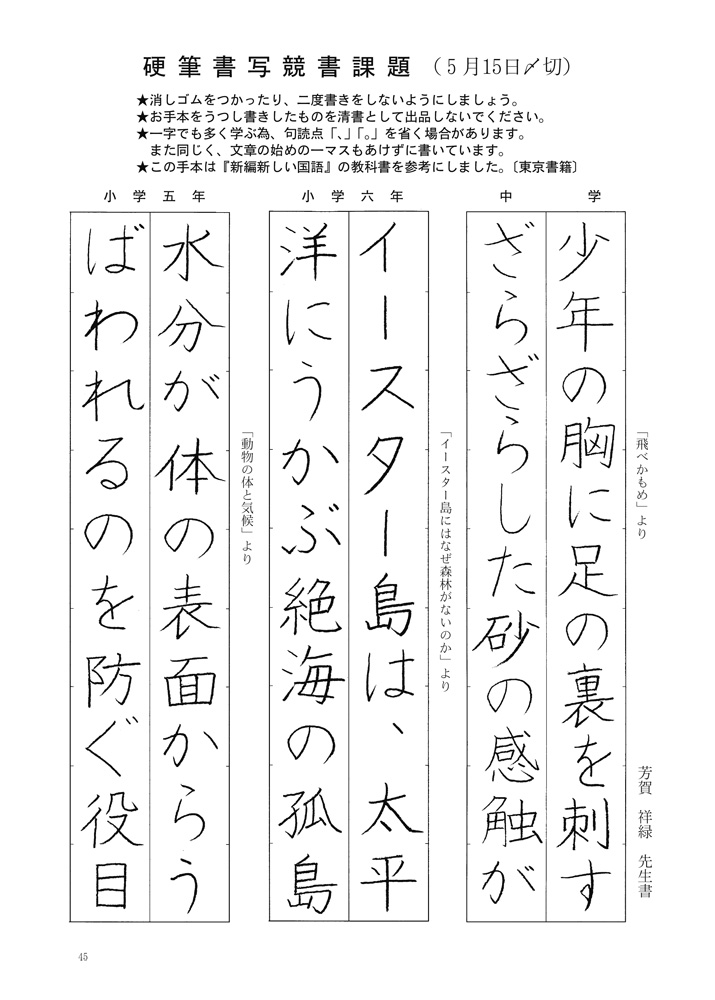 硬筆書写競書課題（５月15日〆切）
★消しゴムをつかったり、二度書きをしないようにしましょう。
★お手本をうつし書きしたものを清書として出品しないでください。
★一字でも多く学ぶ為、句読点「、」「。」を省く場合があります。
また同じく、文章の始めの一マスもあけずに書いています。
★この手本は『新編新しい国語』の教科書を参考にしました。〔東京書籍〕
中学
少年の胸に足の裏を刺す
ざらざらした砂の感触が
「飛べかもめ」より
芳賀 祥緑 先生書
小学六年
イースター島は、太平
洋にうかぶ絶海の孤島
「イースター島にはなぜ森林がないのか」より
小学五年
水分が体の表面からう
ばわれるのを防ぐ役目
「動物の体と気候」より
45